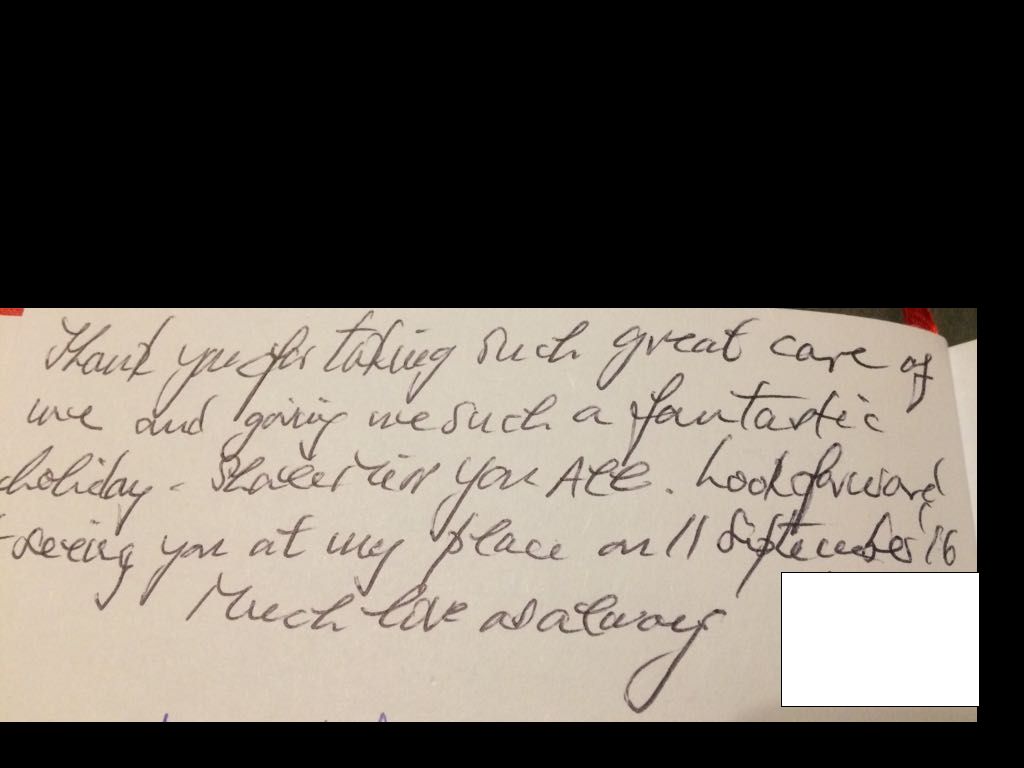 Thank you for taking such great care of
me and giving me such a fantastic
holiday. you ALL. Look forward
seeing you at my place on 11 September 16
Much love as always